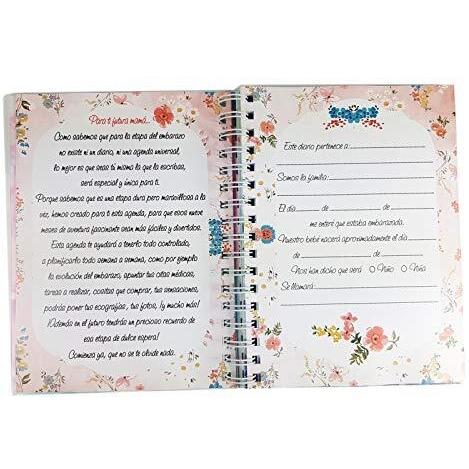 Para ti futura mamá...
Como sabemos que para la etapa del embarazo
no existe ni un diario, ni una agenda universal,
lo mejor es que seas tú misma la que la escribas,
será especial y única para ti.
Porque sabemos que es una etapa dura pero maravillosa a la
vez, hemos creado para ti esta agenda, para que esos nueve
meses de aventura fascinante sean más fáciles y divertidos.
Esta agenda te ayudará a tenerlo todo controlado,
a planificarlo todo semana a semana, como por ejemplo
la evolución del embarazo, apuntar tus citas médicas,
tareas a realizar, cositas que comprar, tus sensaciones,
podrás poner tus ecografías, tus fotos, ¡y mucho más!
¡Además en el futuro tendrás un precioso recuerdo de
esa etapa de dulce espera!
Comienza ya, que no se te olvide nada.
Este diario pertenece a:
Somos la familia:
El día de de
me enteré que estaba embarazada.
Nuestro bebé nacerá aproximadamente el día
de de
Nos han dicho que será Niño Niña
Se llamará: